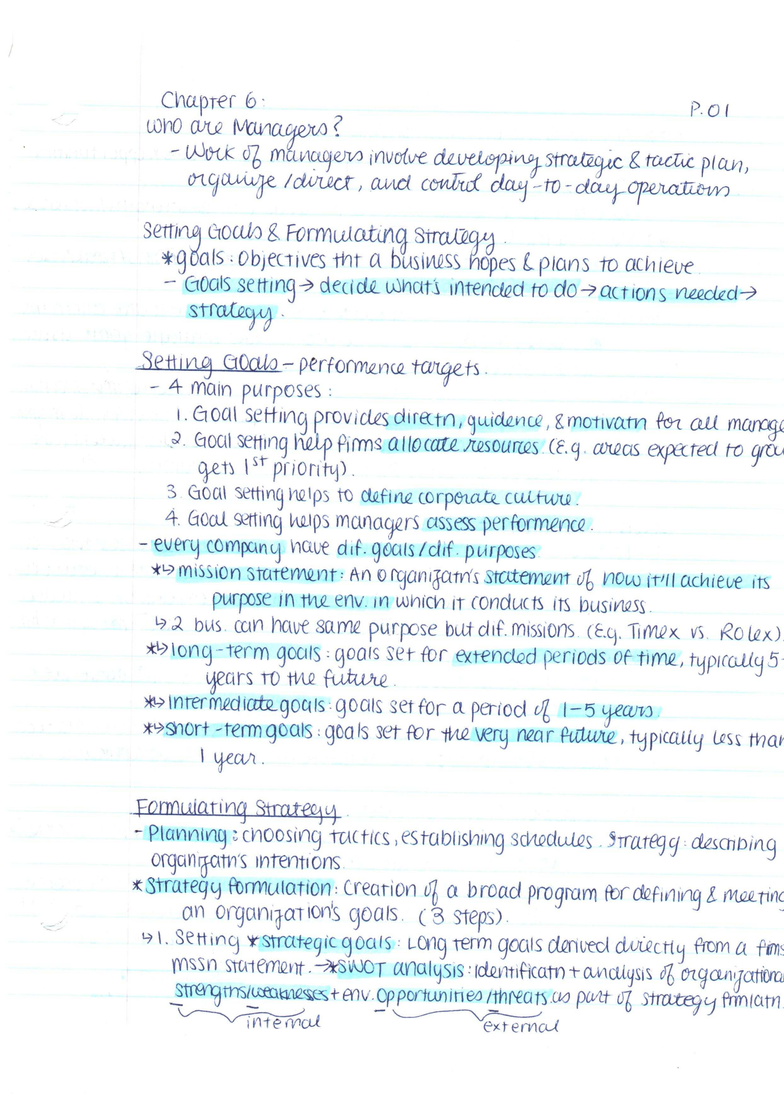 Chapter 6:
P.01
Who are Managers?
- Work of managers involve developing strategic & tactic plan,
organize/direct, and control day-to-day operations
Setting Goals & Formulating Strategy.
*goals: objectives tht a business hopes & plans to achieve
- Goals setting → decide what's intended to do → actions needed →
strategy.
Setting Goals - performence targets.
- 4 main purposes:
1. Goal setting provides directn, guidence, & motivatn for all manage
2. Goal setting help firms allocate resources. (E.g. areas expected to grow
gets 1st priority).
3. Goal setting helps to define corporate culture.
4. Goal setting helps managers assess performence.
- every company have dif. goals/dif. purposes
*↳ mission statement: An organizatn's statement of how it'll achieve its
purpose in the env. in which it conducts its business.
↳ 2 bus. can have same purpose but dif. missions. (E.g. Timex vs. Rolex)
*↳ long-term goals: goals set for extended periods of time, typically 5-
years to the future.
*↳ Intermediate goals: goals set for a period of 1-5 years.
*↳ short-term goals: goals set for the very near future, typically less than
1 year.
Formulating Strategy
- Planning: choosing tactics, establishing schedules. Strategy: describing
organizatn's intentions.
* Strategy formulation: Creation of a broad program for defining & meeting
an organization's goals. (3 steps).
↳ 1. Setting *strategic goals: Long term goals derived directly from a firms
mssn statement. → *SWOT analysis: Identificatn + analysis of organizational
strengths/weaknesses + env. opportunities/threats as part of strategy frmlatn
internal external